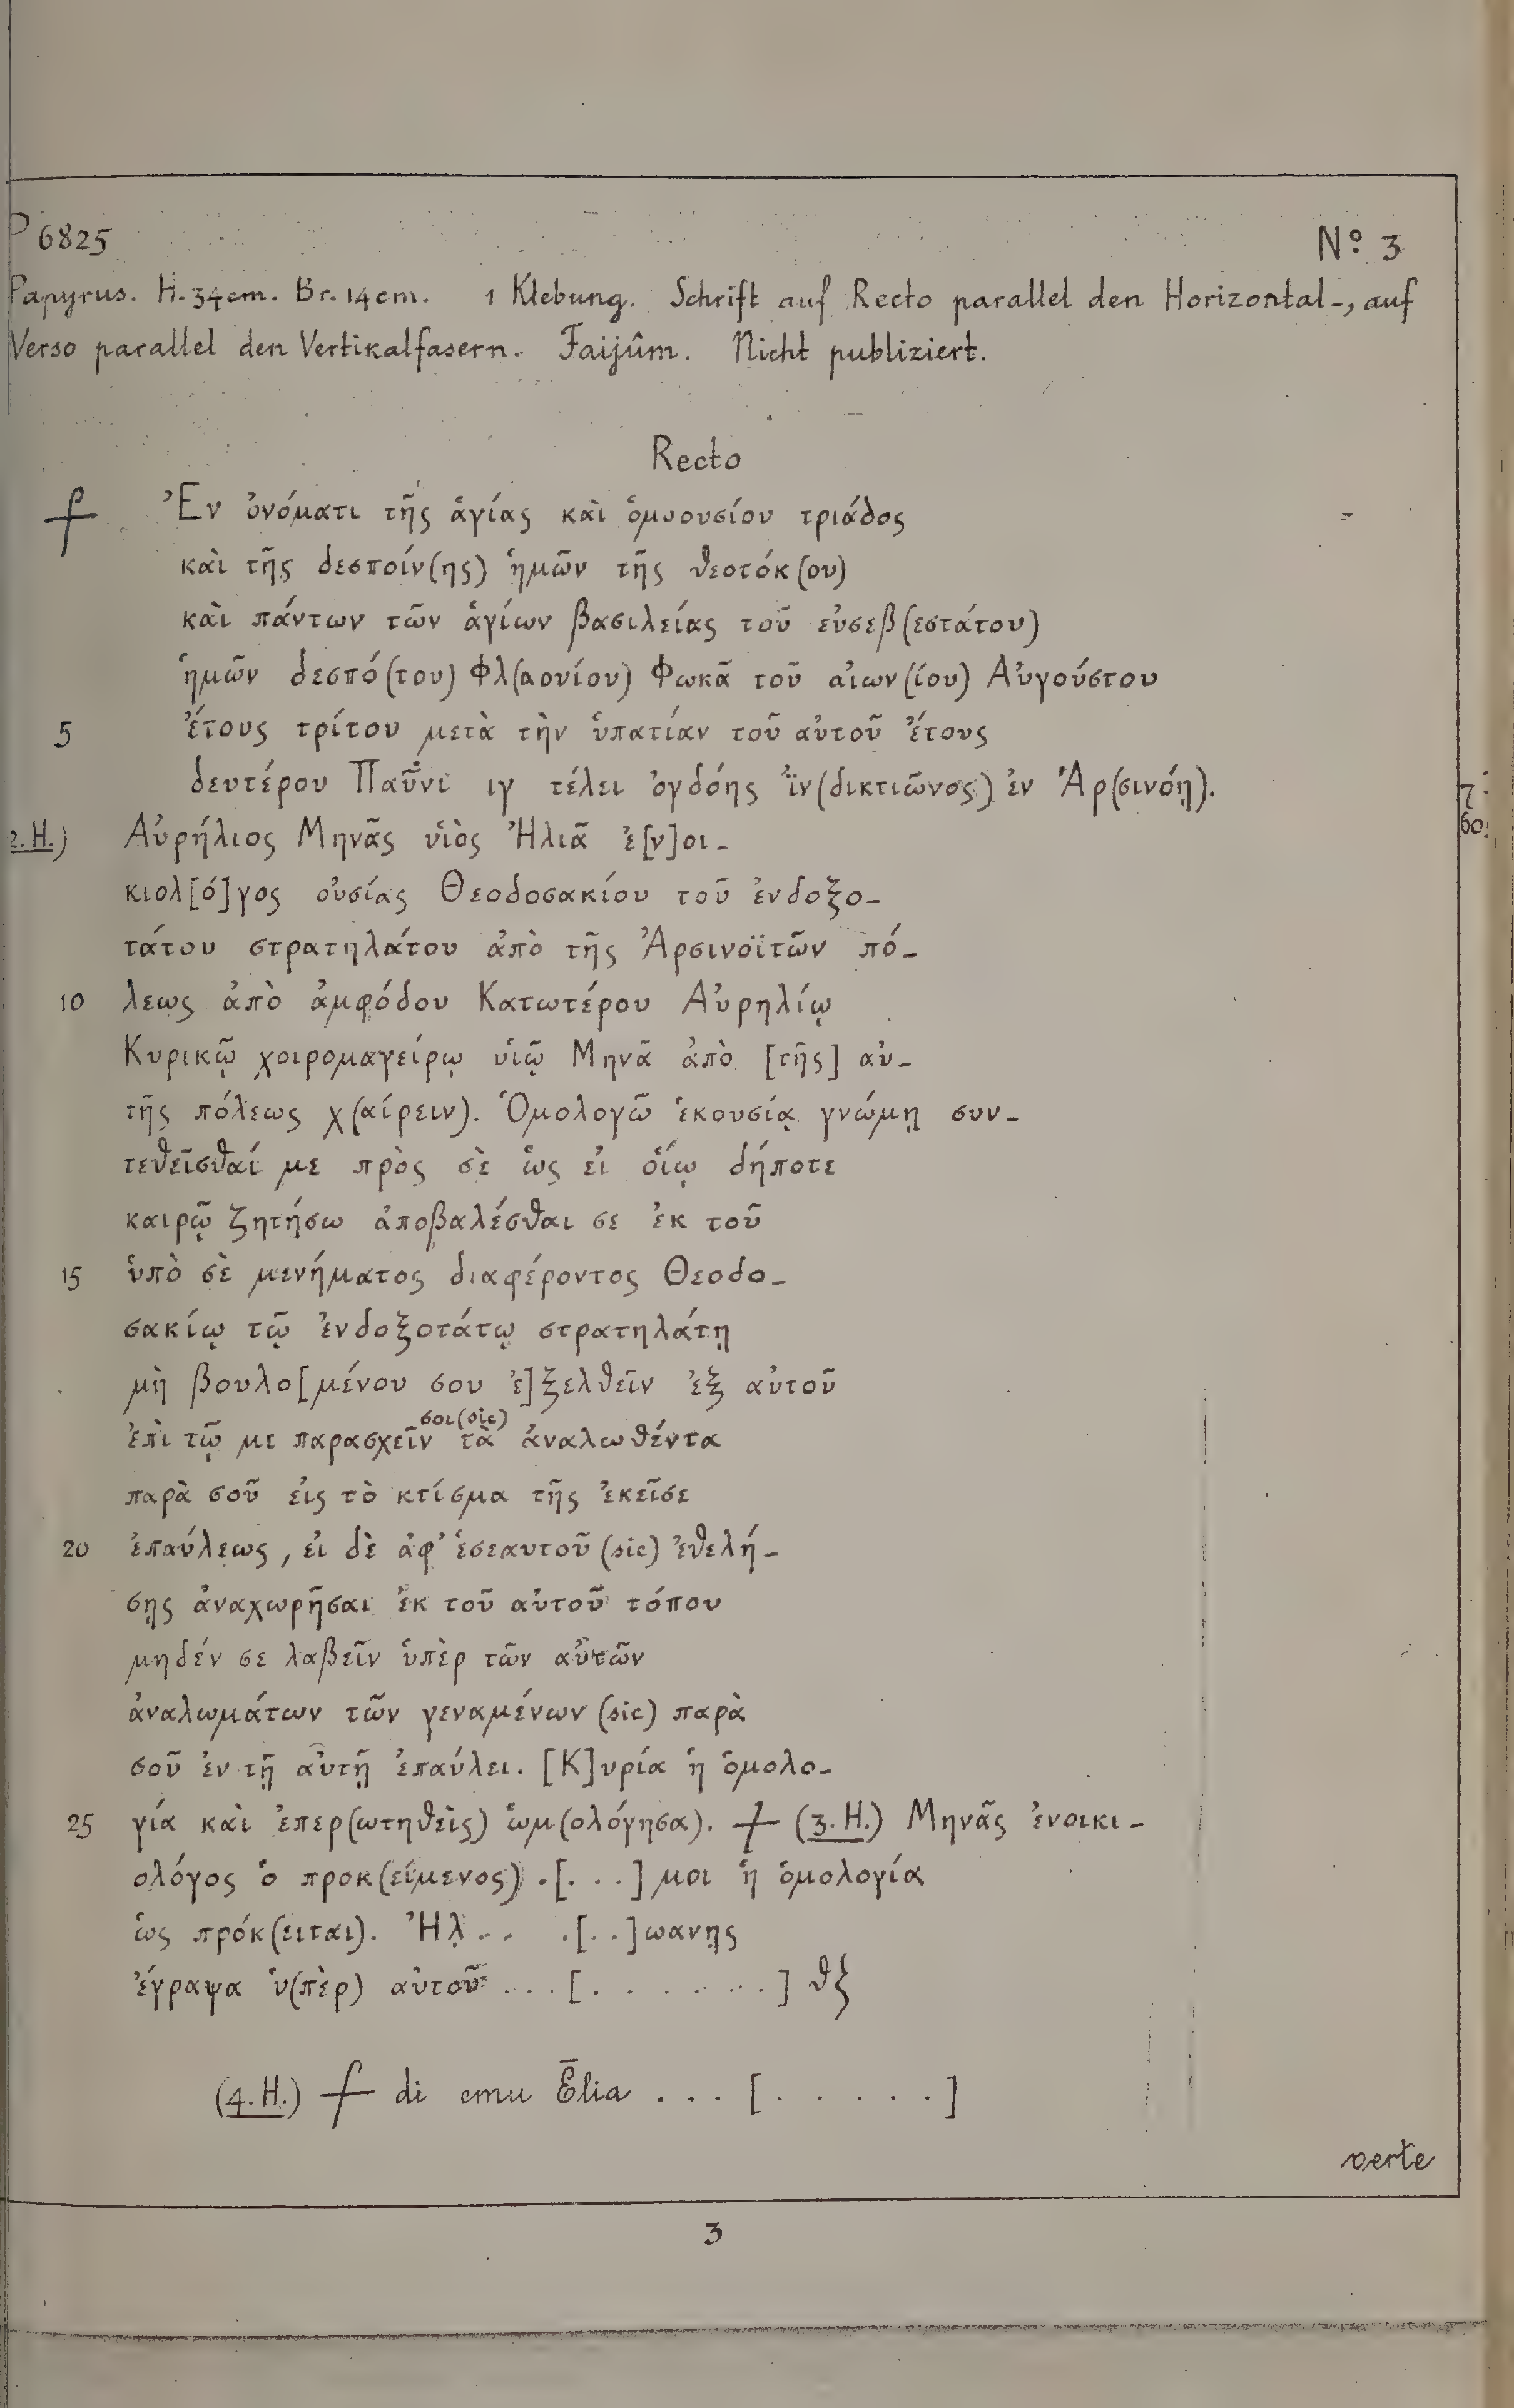 P 6825 Nº 3
Papyrus. H. 34cm. Br. 14cm. 1 Klebung. Schrift auf Recto parallel den Horizontal-, auf
Verso parallel den Vertikalfasern. Faijûm. Nicht publiziert.
Recto
Ἐν ὀνόματι τῆς ἁγίας καὶ ὁμοουσίου τριάδος
καὶ τῆς δεσποίν(ης) ἡμῶν τῆς θεοτόκ(ου)
καὶ πάντων τῶν ἁγίων βασιλείας τοῦ εὐσεβ(εστάτου)
ἡμῶν δεσπό(του) Φλ(αουίου) Φωκᾶ τοῦ αἰων(ίου) Αὐγούστου
5 ἔτους τρίτου μετὰ τὴν ὑπατίαν τοῦ αὐτοῦ ἔτους
δευτέρου Παῦνι ιγ τέλει ὀγδόης ἰ̈ν(δικτιῶνος) ἐν Ἀρ(σινόῃ).
2. H.) Αὐρήλιος Μηνᾶς υἱὸς Ἠλιᾶ ἐ[ν]οι-
κιολ[ό]γος οὐσίας Θεοδοσακίου τοῦ ἐνδοξο-
τάτου στρατηλάτου ἀπὸ τῆς Ἀρσινοϊτῶν πό-
10 λεως ἀπὸ ἀμφόδου Κατωτέρου Αὐρηλίῳ
Κυρικῷ χοιρομαγείρῳ υἱῷ Μηνᾶ ἀπὸ [τῆς] αὐ-
τῆς πόλεως χ(αίρειν). Ὁμολογῶ ἑκουσίᾳ γνώμῃ συν-
τεθεῖσθαί με πρὸς σὲ ὡς εἰ οἵῳ δήποτε
καιρῷ ζητήσω ἀποβαλέσθαι σε ἐκ τοῦ
15 ὑπὸ σὲ μενήματος διαφέροντος Θεοδο-
σακίῳ τῷ ἐνδοξοτάτῳ στρατηλάτῃ
μὴ βουλο[μένου σου ἐ]ξελθεῖν ἐξ αὐτοῦ
σοι(sic)
ἐπὶ τῷ με παρασχεῖν τὰ ἀναλωθέντα
παρὰ σοῦ εἰς τὸ κτίσμα τῆς ἐκεῖσε
20 ἐπαύλεως, εἰ δὲ ἀφ' ἑσεαυτοῦ (sic) ἐθελή-
σῃς ἀναχωρῆσαι ἐκ τοῦ αὐτοῦ τόπου
μηδέν σε λαβεῖν ὑπὲρ τῶν αὐτῶν
ἀναλωμάτων τῶν γεναμένων (sic) παρὰ
σοῦ ἐν τῇ αὐτῇ ἐπαύλει. [Κ]υρία ἡ ὁμολο-
25 γία καὶ ἐπερ(ωτηθεὶς) ὡμ(ολόγησα). + (3. H.) Μηνᾶς ἐνοικι-
ολόγος ὁ προκ(είμενος) .[...] μοι ἡ ὁμολογία
ὡς πρόκ(ειται). Ἠλ̣.. .[..]ωανης
ἔγραψα ὑ(πὲρ) αὐτοῦ ...[.......]
(4. H.) di emu Ēlia ...[.....]
verte
3